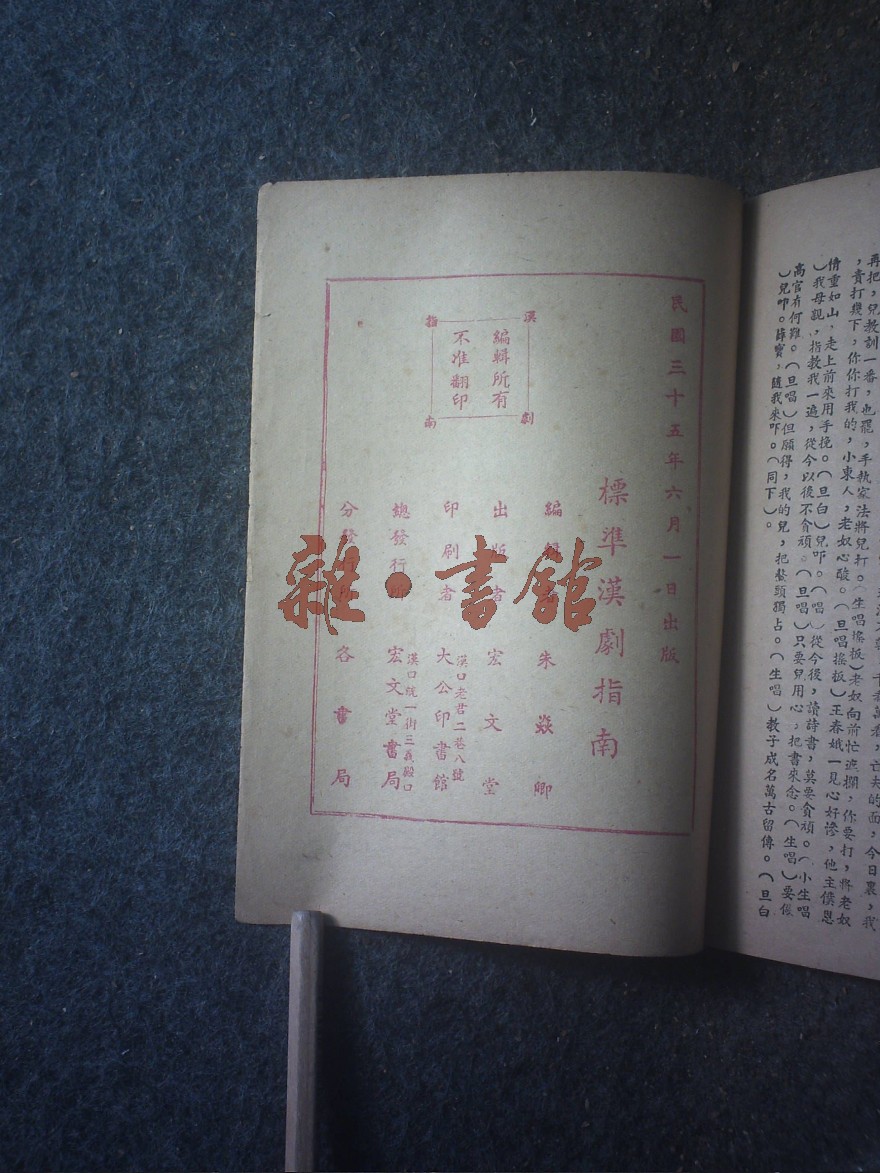 再把，兒教訓一番，也罷，手執家法將兒打。（生唱搖板）老奴向前忙遮攔，你要打，將老奴
，責打幾下，你你打我的，小東人，老奴心酸。（旦唱搖板）王春娥一見心好慘，他主僕恩
情重如山、走上前來用手挽。（旦白）兒吓。（唱）從今後，讀詩書，莫要貪頑。（小生唱
）我母親，指教我一遍，從今以後不貪頑。（旦唱）只要兒用心，把書來念。（生唱）要做
高官有何難。（旦唱）但願得，我的兒，把鰲頭獨占。（生唱）教子成名萬古留傳。（旦白
）兒吓。薛寶，隨我來吓。（同下）。
民國三十五年六月一日出版
標準漢劇指南
漢劇指南
編輯所有
不准翻印
編輯者 朱㷼卿
出版者 宏文堂
漢口老君二巷八號
印刷者 大公印書館
漢口統一街三義殿口
總發行所 宏文堂書局
分發行所 各書局
雜·書館